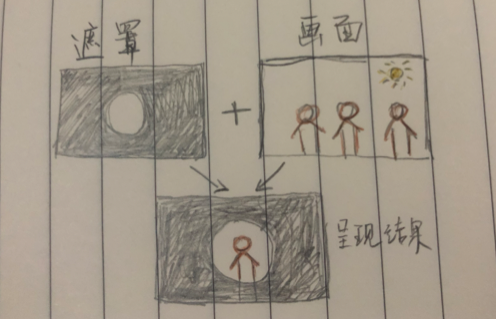 遮罩
画面
呈现结果